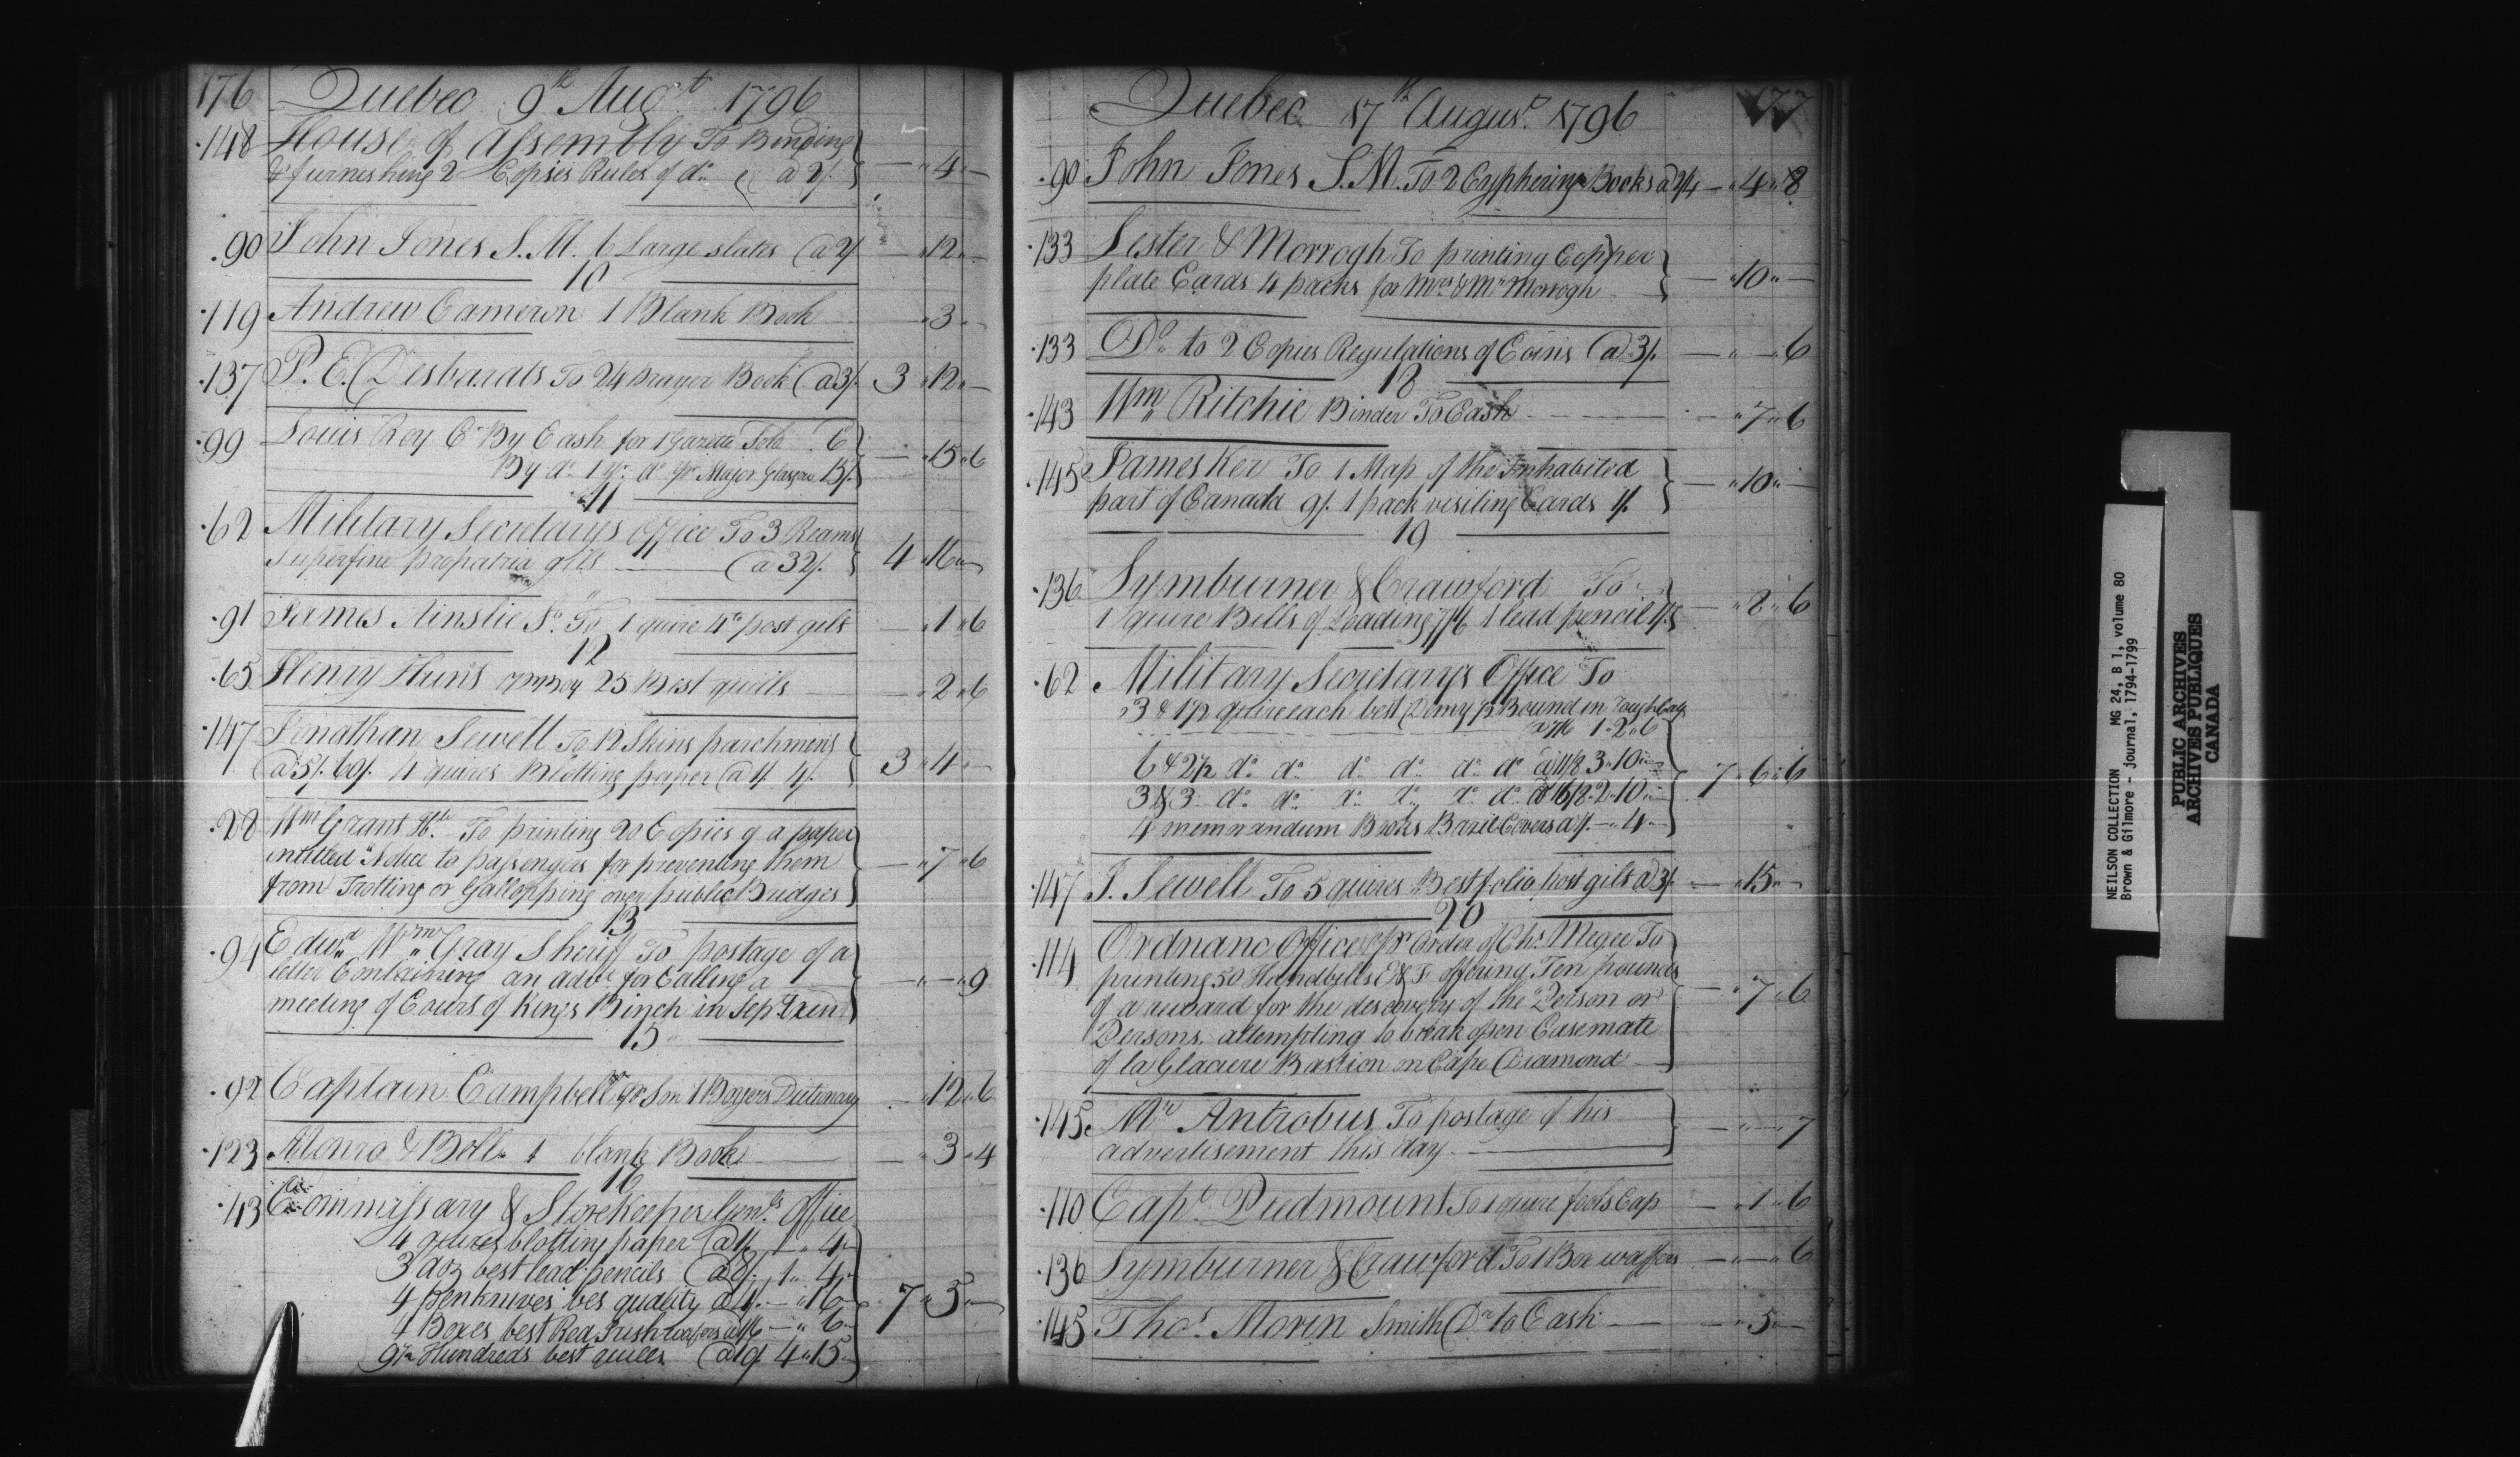 176 Quebec 9th Augt 1796
148 House of Assembly To Binding
& furnishing 2 Copies Rules of do a 2/. — " 4 " —
90 John Jones S. M. 6 Large slates @ 2/ — " 12 " —
10
119 Andrew Cameron 1 Blank Book — " 3 " —
137 P. E. Desbarats To 24 prayer Book @ 3/. 3 " 12 " —
99 Louis Roy Cr By Cash for 1 Gazette Sold 6
By do 1 yr do pr Major Glasgow 15/. — " 15 " 6
11
62 Military Secretarys Office To 3 Reams
superfine propatria gilt — @ 32/. 4 " 16 " —
91 James Ainslie Sr To 1 quire 4to post gilt — " 1 " 6
12
65 Henry Hunt 25 Best quills — " 2 " 6
147 Jonathan Sewell To 12 Skins parchment
@ 5/. 60/. 4 quires Blotting paper @ 1/. 4/. 3 " 4 " —
28 Wm Grant To printing 20 Copies of a paper
intitled "Notice to passengers for preventing them
from Trotting or Gallopping over public Bridges — " 7 " 6
13
94 Edwd Wm Gray Sheriff To postage of a
letter Containing an advt for Calling a
meeting of Court of Kings Binch in Sept — " — " 9
15
92 Captain Campbell pr Son 1 Boyers Dictionary — " 12 " 6
123 Monro & Bell 1 blank Book — " 3 " 4
16
43 Commissary & StoreKeeper Genls Office
4 quires blotting paper @ 1/. " 4 "
3 doz best lead pencils @ 8/. 1 " 4 "
4 Penknives bes quality @ 4/. — " 16 —
4 Boxes best Red Irish wafers a 1/6 — " 6 — 7 " 5 " —
9½ Hundreds best quills @ 10/. 4 " 15 "
Quebec 17th August 1796 177
90 John Jones S. M. To 2 Cyphering Books a 2/4 — " 4 " 8
133 Lester & Morrogh To printing Copper
plate Cards 4 packs for Mrs & Mr Morrogh — " 10 " —
133 Do to 2 Copies Regulations of Coins @ 3/. — " — " 6
18
143 Wm Ritchie Binder To Cash — " 7 " 6
145 James Ker To 1 Map of the Inhabited
part of Canada 9/. 1 pack visiting Cards 1/. — " 10 " —
19
136 Symburner & Crawford To
1 quire Bills of Loading 1/6 1 lead pencil 1/. — " 2 " 6
62 Military Secretary's Office To
3 & 1½ quire each best Demy p Bound in rough Calf
a 7/6 1 " 2 " 6
6 & 2½ do do do do do do @ 11/8 3 " 10 "
3 & 3 do do do do do do @ 16/8 2 " 10 " 7 " 6 " 6
4 memorandum Books Bazil Covers a 1/. — " 4 "
147 J. Sewell To 5 quires Best folio post gilt a 3/. — " 15 " —
20
114 Ordnanc Office pr Order of Chs Megee To
printing 50 Handbills E & F offering Ten pounds
of a reward for the discovery of the Person or
Persons attempting to break open Casemate
of la Glaciere Bastion on Cape Diamond — " 7 " 6
145 Mr Antrobus To postage of his
advertisement this day — " — " 7
110 Capt Piedmount To 1 quire fools Cap — " 1 " 6
136 Symburner & Crawford To 1 Box waffers — " — " 6
145 Thos Morin Smith Dr to Cash — " 5 " —
NEILSON COLLECTION MG 24, B 1, volume 80
Brown & Gilmore - Journal, 1794-1799
PUBLIC ARCHIVES
ARCHIVES PUBLIQUES
CANADA